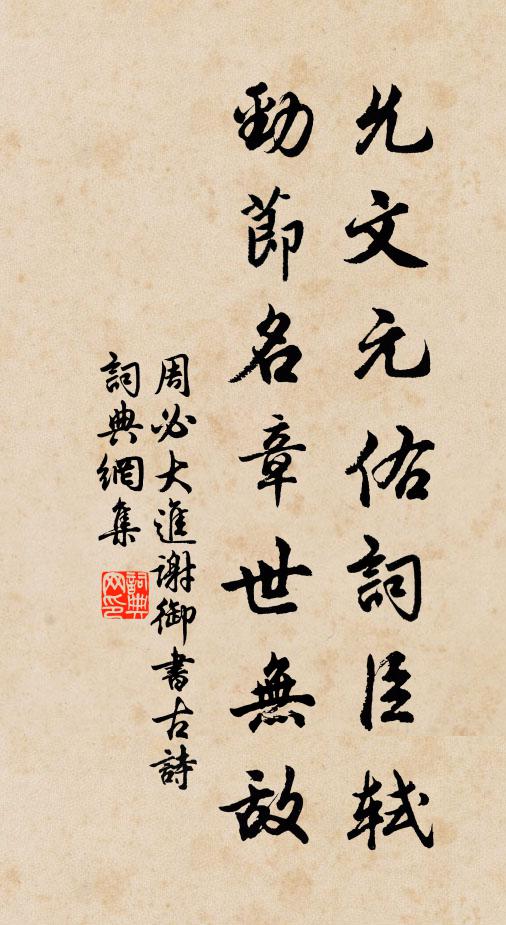 允文元佑詞臣軾
勁節名章世無敌
周必大進謝御書古詩
詞典網集
詞典网印